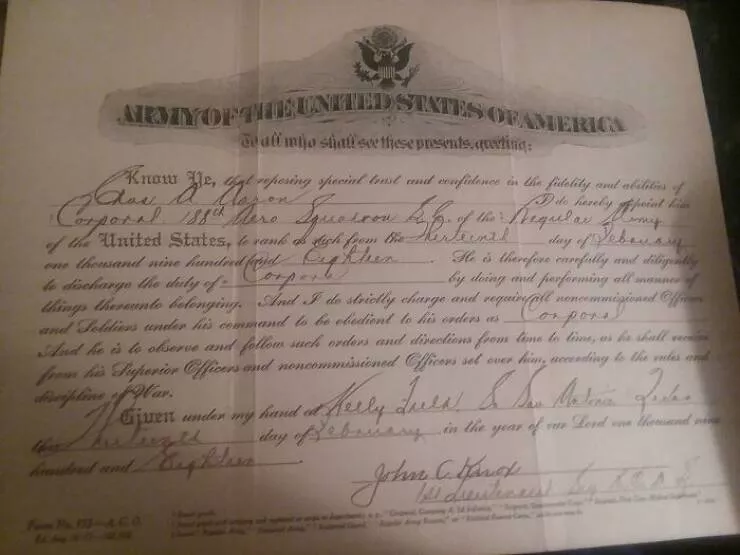 ARMY OF THE UNITED STATES OF AMERICA
To all who shall see these presents, greeting:
Know Ye, that reposing special trust and confidence in the fidelity and abilities of
Chas A. Aaron I do hereby appoint him
Corporal 188th Aero Squadron S.C. of the Regular Army
of the United States, to rank as such from the thirteenth day of February
one thousand nine hundred and Eighteen. He is therefore carefully and diligently
to discharge the duty of Corporal by doing and performing all manner of
things thereunto belonging. And I do strictly charge and require all noncommissioned Officers
and Soldiers under his command to be obedient to his orders as Corporal
And he is to observe and follow such orders and directions from time to time, as he shall receive
from his Superior Officers and noncommissioned Officers set over him, according to the rules and
discipline of War.
Given under my hand at Kelly Field, So San Antonio Texas
this thirteenth day of February in the year of our Lord one thousand nine
hundred and Eighteen
John C. Knox
1st Lieutenant
Form No.